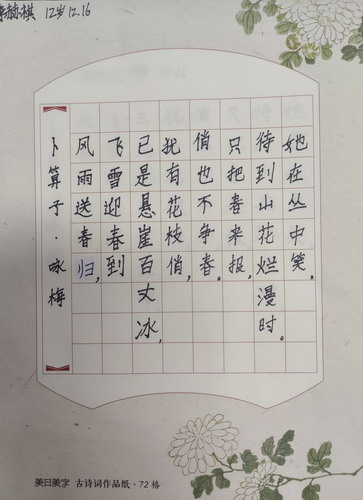 棋 12岁 12.16
卜算子·咏梅
风雨送春归,
飞雪迎春到
已是悬崖百丈冰,
犹有花枝俏,
俏也不争春。
只把春来报,
待到山花烂漫时。
她在丛中笑。
美日美字 古诗词作品纸·72格